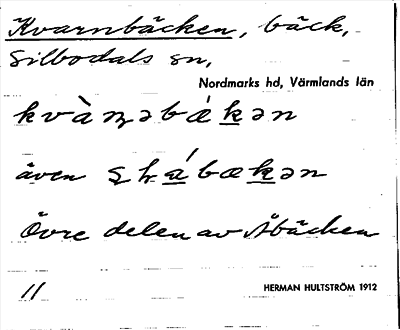 Kvarnbäcken, bäck,
Silbodals sn,
Nordmarks hd, Värmlands län
kvàɳəbákən
även
Övre delen av Åbäcken
11
HERMAN HULTSTRÖM 1912